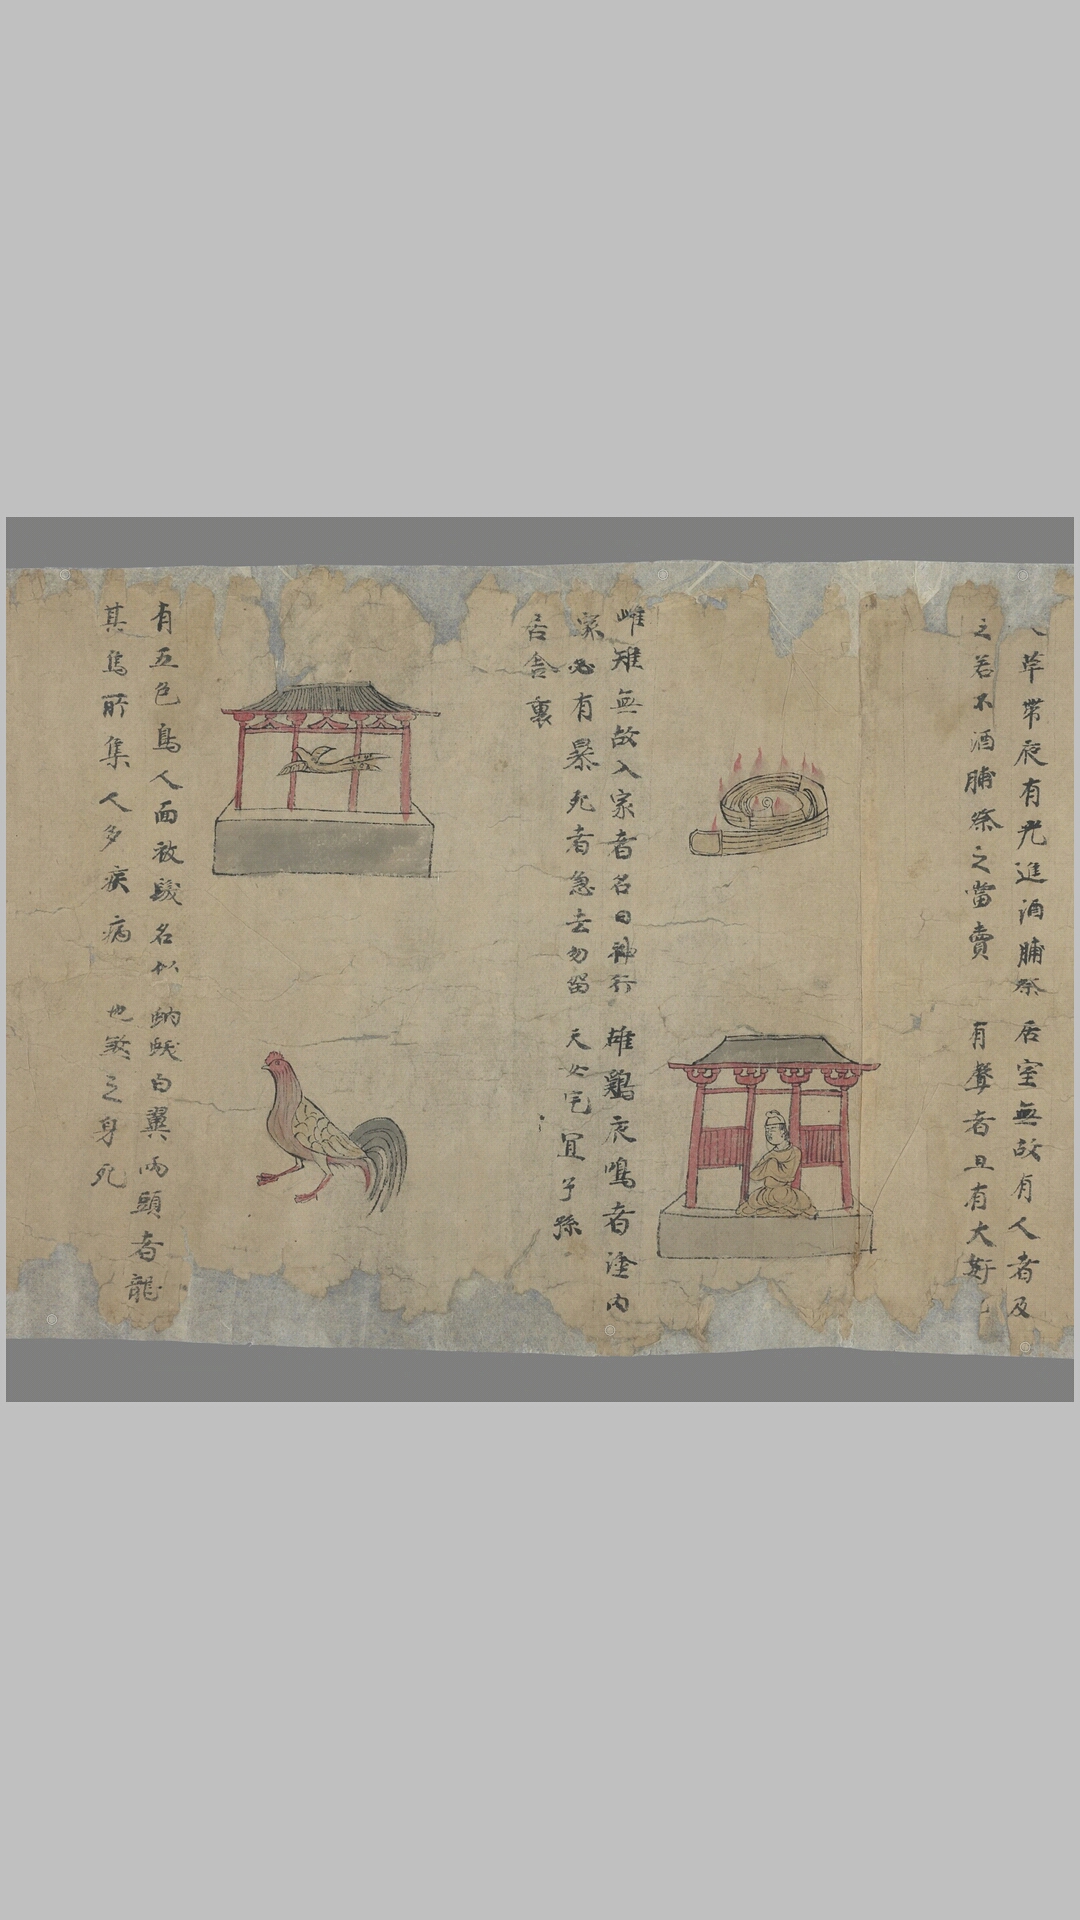 草帶夜有光進酒脯祭
之若不酒脯祭之當賣
居室無故有人者及
有聲者且有大奸
雌雉無故入家者名曰神行
家必有暴死者急去勿留
舍裏
雄鷄夜鳴者塗內
天宅宜子孫
有五色鳥人面被髮名
其鳥所集人多疾病
白翼兩頭者龍
也煞之身死